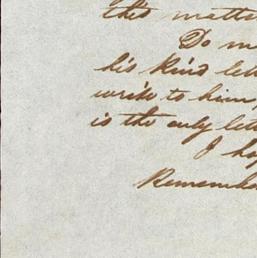 this matte
Do m
his kind lett
write to him,
is the only lett
I hop
Remembe